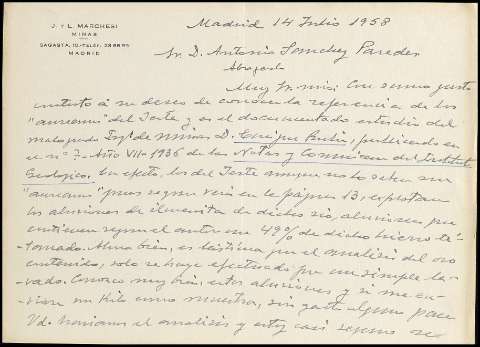 J. Y L. MARCHESI
MINAS
SAGASTA, 10.-TELÉF.
MADRID
Madrid 14 Julio 1958
Sr. D. Antonio Sanchez Paredes
Abogado
Muy Sr. mio: Con sumo gusto
contesto á su deseo de conocer la referencia de los
"aureanos" del Tiete y es el documentado estudio del
malogrado Ingº de Minas D. Enrique Rubio, publicado en
el nº 7. Año VII-1936 de las Notas y Comunicac. del Instituto
Geologico. En efecto, los del
"aureanos" pues segun verá en la página 13, explotan
los aluviones de ilmenita de dicho rio, aluviones que
contienen segun el autor un 49% de dicho hierro ti-
tanado. Ahora bien, es lástima que el analisis del oro
contenido, solo se haya efectuado por un simple la-
vado. Conozco muy bien, estos aluviones y si me en-
viase un Kilo como muestra, sin gasto alguno para
Vd. hariamos el analisis y estoy casi seguro se